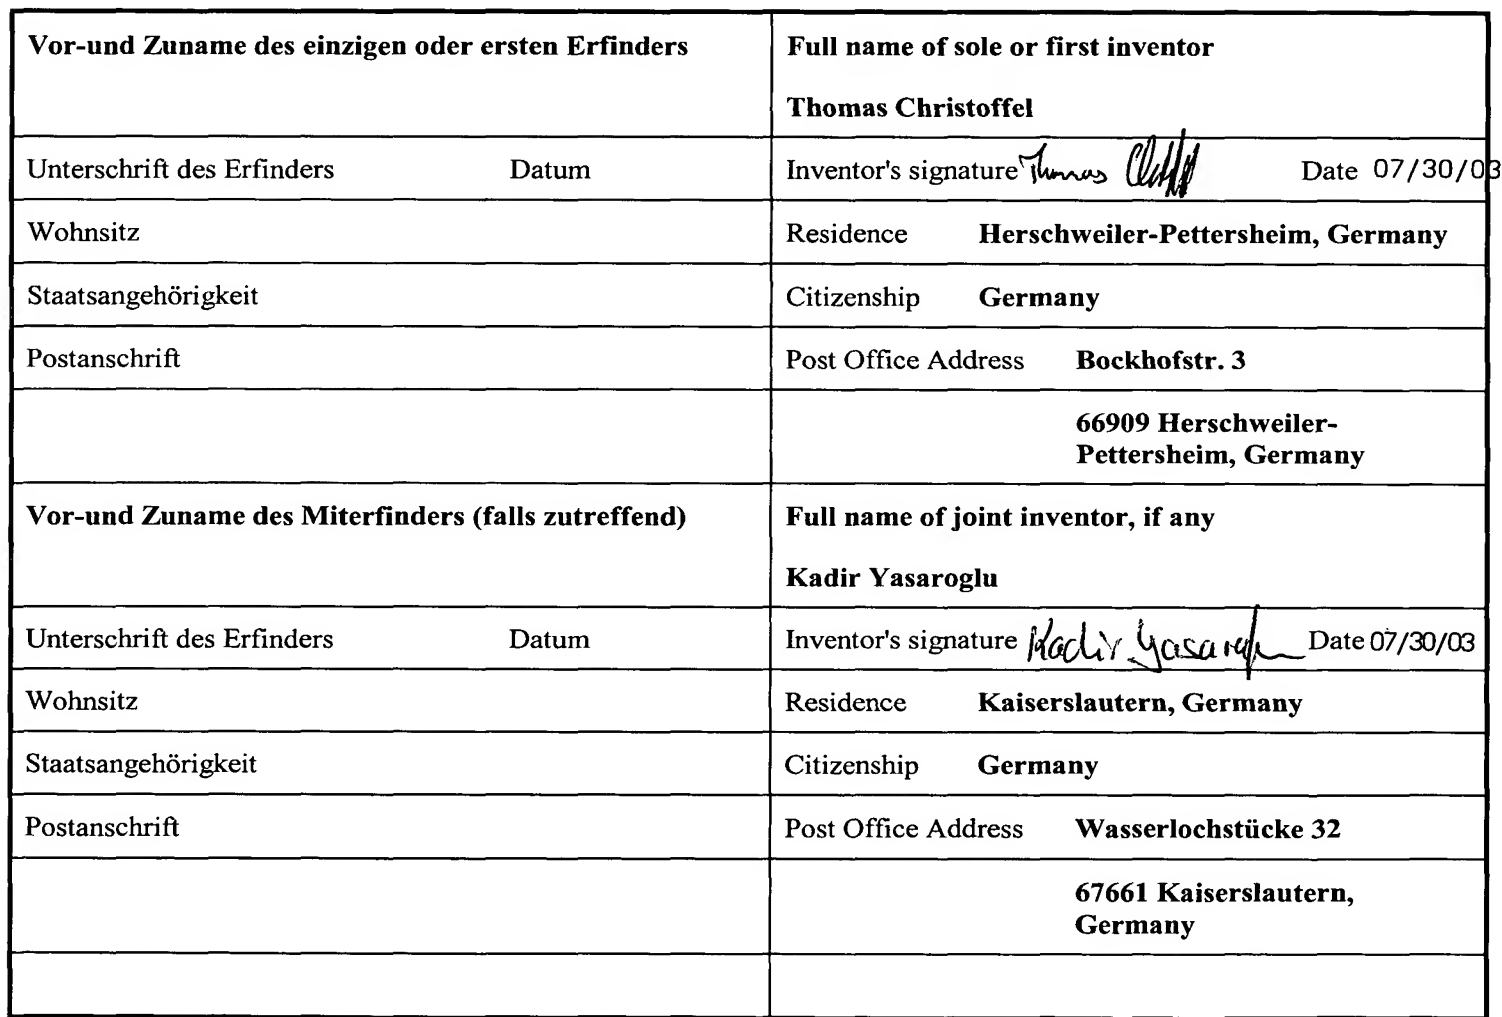 Vor-und Zuname des einzigen oder ersten Erfinders
Full name of sole or first inventor
Thomas Christoffel
Unterschrift des Erfinders Datum
Inventor's signature Thomas Date 07/30/03
Wohnsitz
Residence Herschweiler-Pettersheim, Germany
Staatsangehörigkeit
Citizenship Germany
Postanschrift
Post Office Address Bockhofstr. 3
66909 Herschweiler-
Pettersheim, Germany
Vor-und Zuname des Miterfinders (falls zutreffend)
Full name of joint inventor, if any
Kadir Yasaroglu
Unterschrift des Erfinders Datum
Inventor's signature Kadir Date 07/30/03
Wohnsitz
Residence Kaiserslautern, Germany
Staatsangehörigkeit
Citizenship Germany
Postanschrift
Post Office Address Wasserlochstücke 32
67661 Kaiserslautern,
Germany